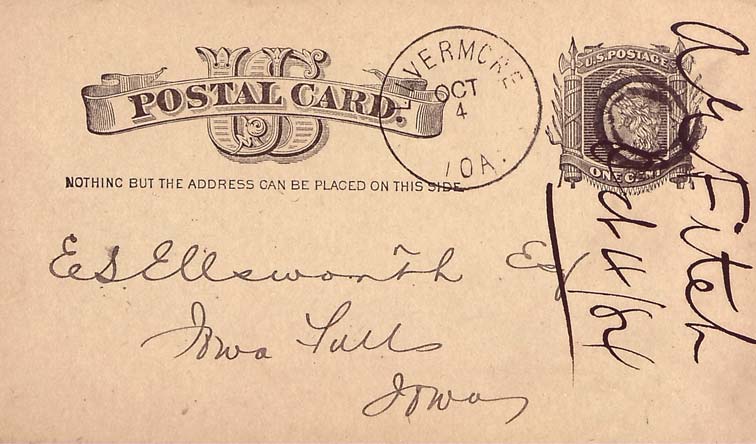 US
POSTAL CARD.
LIVERMORE
OCT
4
IOA.
U.S. POSTAGE
ONE CENT
NOTHING BUT THE ADDRESS CAN BE PLACED ON THIS SIDE.
E S Ellsworth Esq
Iowa Falls
Iowa
Fitch
4/84